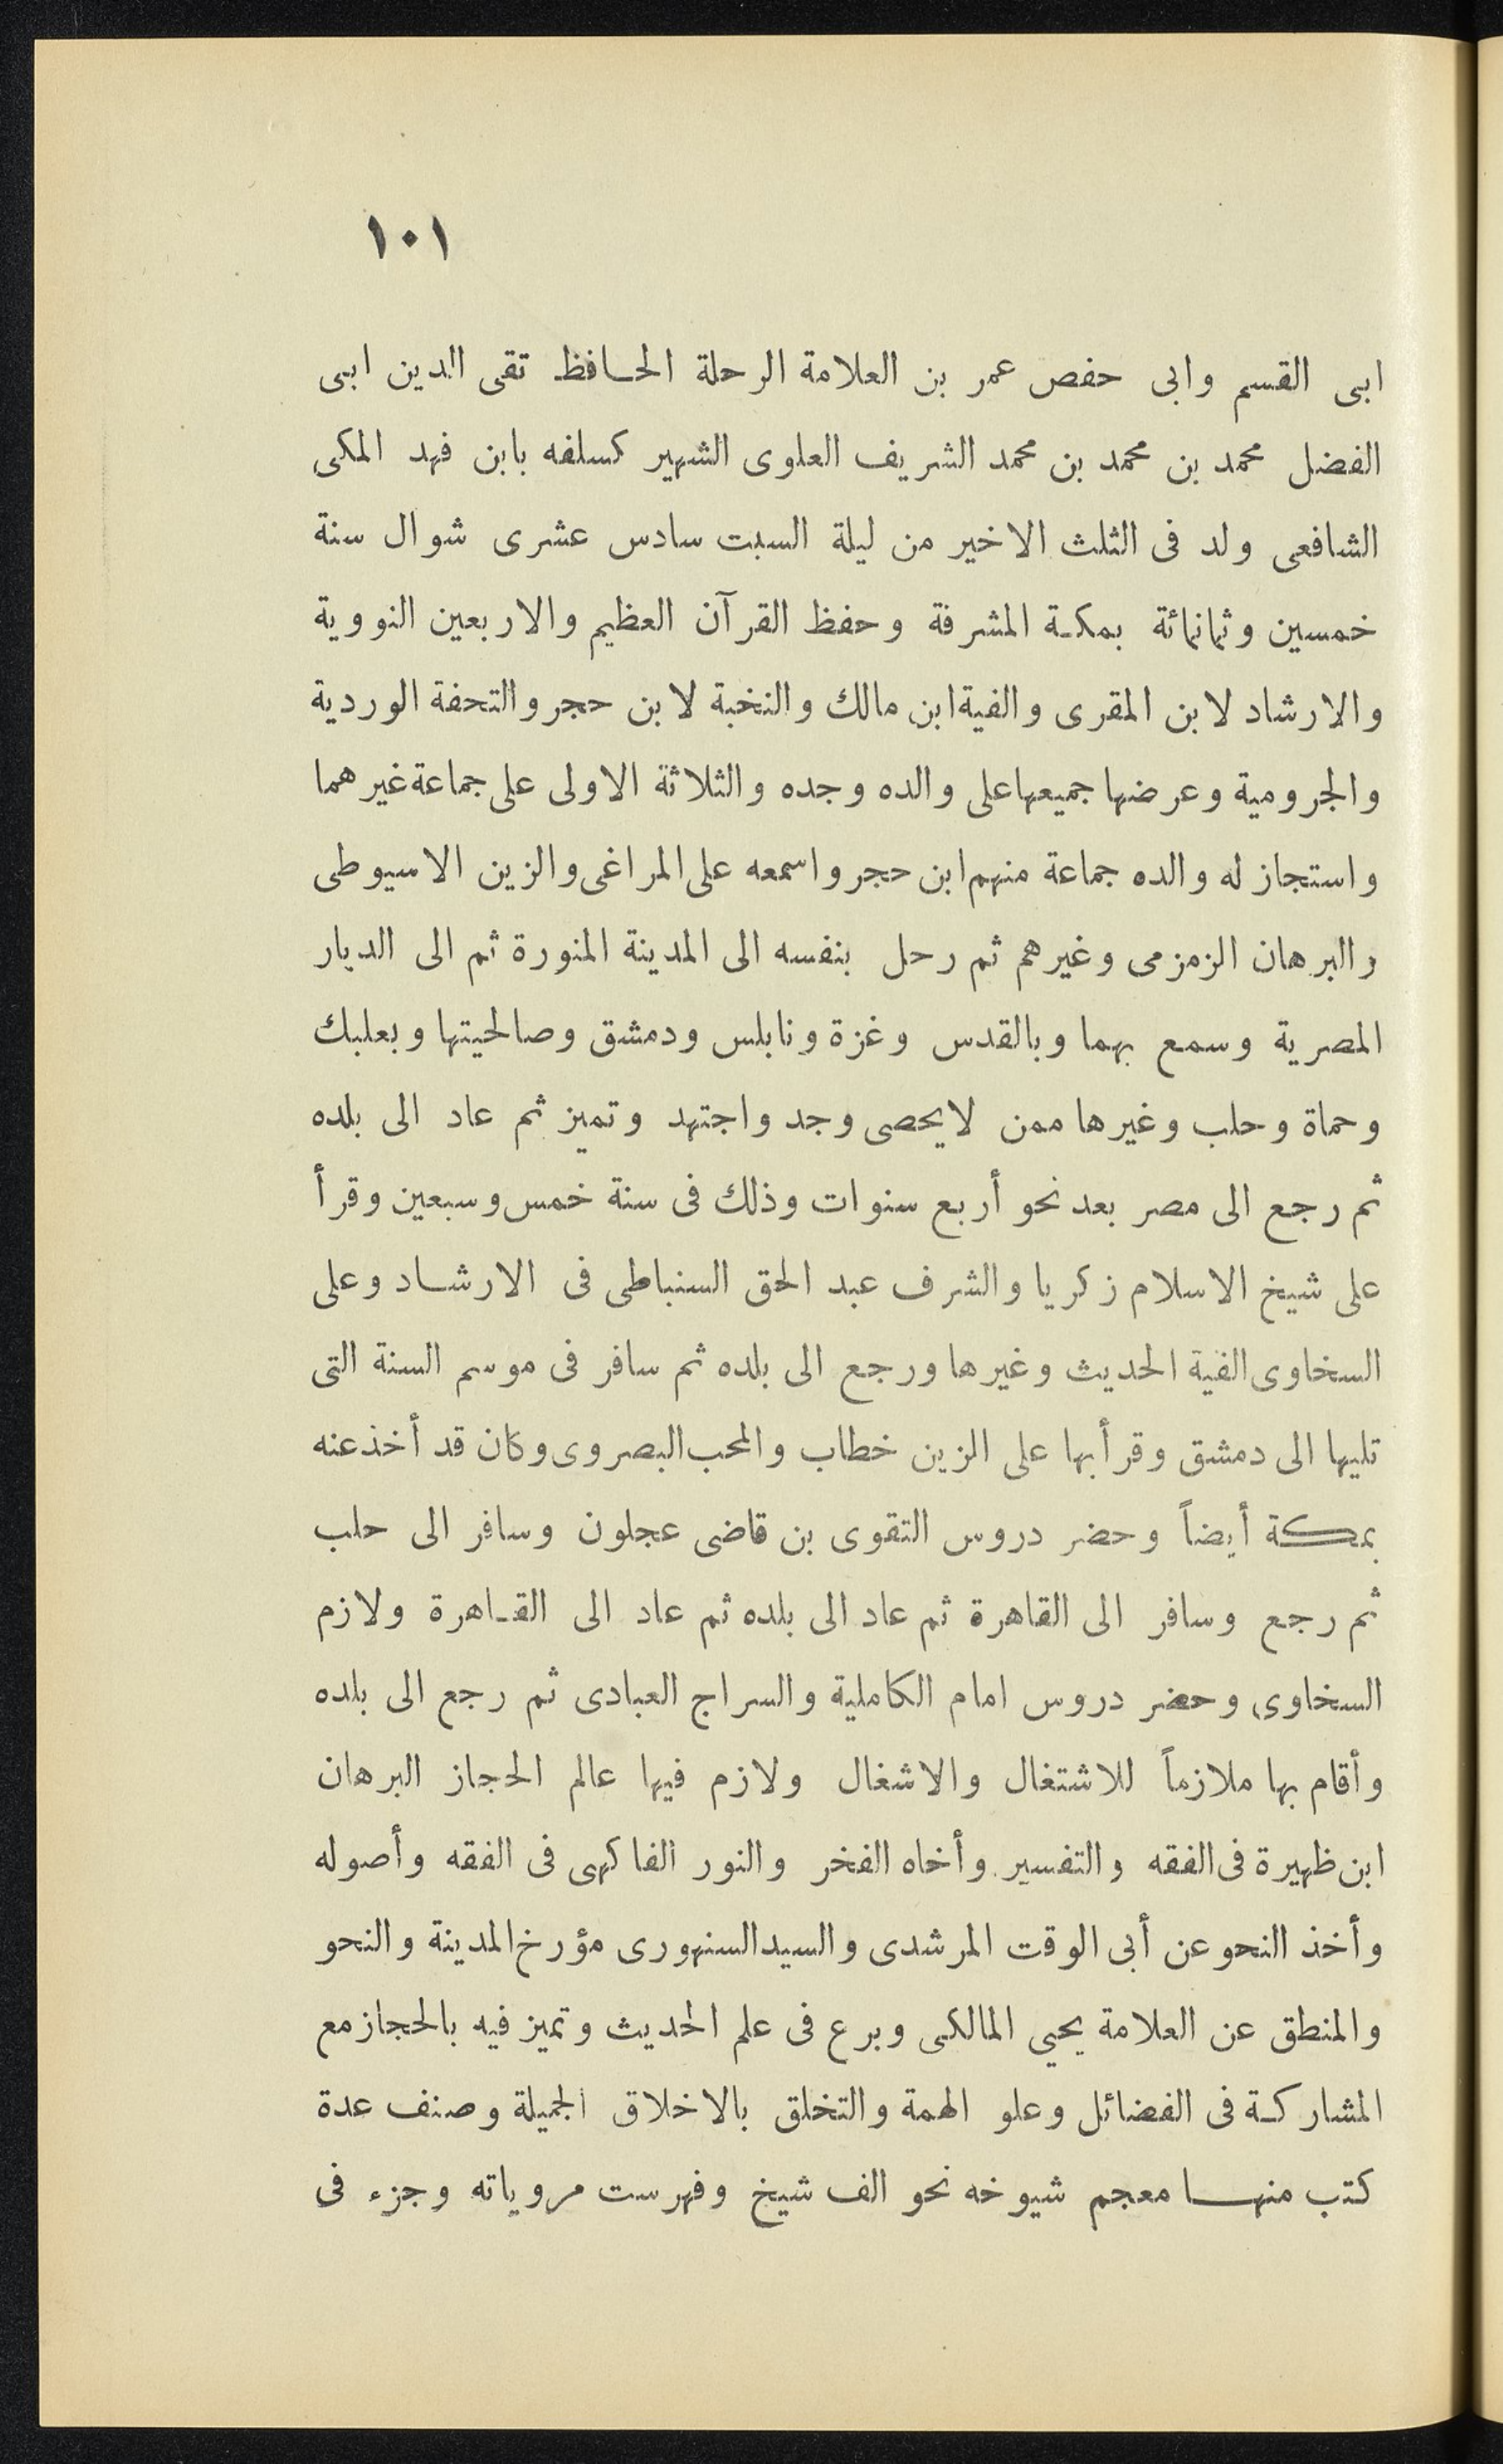 ١٠١
ابى القسم وابى حفص عمر بن العلامة الرحلة الحافظ تقى الدين ابى
الفضل محمد بن محمد بن محمد الشريف العلوى الشهير كسلفه بابن فهد المكى
الشافعى ولد فى الثلث الاخير من ليلة السبت سادس عشرى شوال سنة
خمسين وثمانمائة بمكة المشرفة وحفظ القرآن العظيم والاربعين النووية
والارشاد لابن المقرى والفية ابن مالك والنخبة لابن حجر والتحفة الوردية
والجرومية وعرضها جميعها على والده وجده والثلاثة الاولى على جماعة غيرهما
واستجاز له والده جماعة منهم ابن حجر واسمعه على المراغى والزين الاسيوطى
والبرهان الزمزمى وغيرهم ثم رحل بنفسه الى المدينة المنورة ثم الى الديار
المصرية وسمع بهما وبالقدس وغزة ونابلس ودمشق وصالحيتها وبعلبك
وحماة وحلب وغيرها ممن لايحصى وجد واجتهد وتميز ثم عاد الى بلده
ثم رجع الى مصر بعد نحو أربع سنوات وذلك فى سنة خمس وسبعين وقرأ
على شيخ الاسلام زكريا والشرف عبد الحق السنباطى فى الارشاد وعلى
السخاوى الفية الحديث وغيرها ورجع الى بلده ثم سافر فى موسم السنة التى
تليها الى دمشق وقرأ بها على الزين خطاب والمحب البصروى وكان قد أخذ عنه
بمكة أيضاً وحضر دروس التقوى بن قاضى عجلون وسافر الى حلب
ثم رجع وسافر الى القاهرة ثم عاد الى بلده ثم عاد الى القاهرة ولازم
السخاوى وحضر دروس امام الكاملية والسراج العبادى ثم رجع الى بلده
وأقام بها ملازماً للاشتغال والاشغال ولازم فيها عالم الحجاز البرهان
ابن ظهيرة فى الفقه والتفسير وأخاه الفخر والنور الفاكهى فى الفقه وأصوله
وأخذ النحو عن أبى الوقت المرشدى والسيد السنهورى مؤرخ المدينة والنحو
والمنطق عن العلامة يحيي المالكى وبرع فى علم الحديث وتميز فيه بالحجاز مع
المشاركة فى الفضائل وعلو الهمة والتخلق بالاخلاق الجميلة وصنف عدة
كتب منها معجم شيوخه نحو الف شيخ وفهرست مروياته وجزء فى